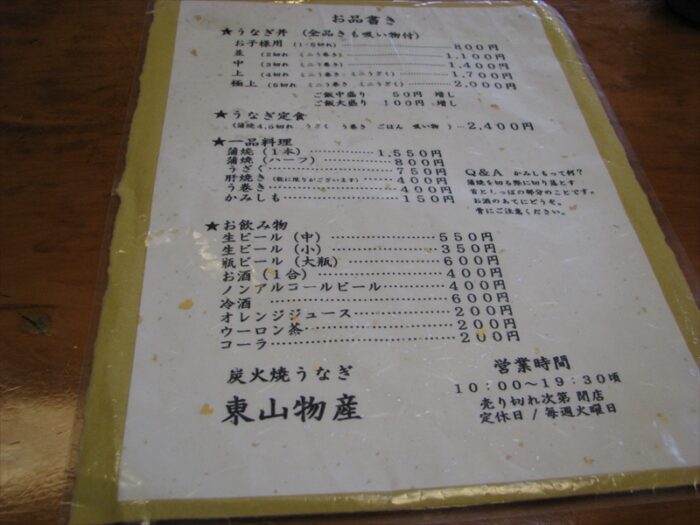 お品書き
★うなぎ丼 (全品きも吸い物付)
お子様用 (1.5切れ) 800円
並 (2切れ ミニう巻き) 1,100円
中 (3切れ ミニう巻き) 1,400円
上 (4切れ ミニう巻き・ミニうざく) 1,700円
極上 (5切れ ミニう巻き ミニうざく) 2,000円
ご飯中盛り 50円 増し
ご飯大盛り 100円 増し
★うなぎ定食
(蒲焼4,5切れ うざく う巻き ごはん 吸い物 ) … 2,400円
★一品料理
蒲焼 (1本) 1,550円
蒲焼 (ハーフ) 800円
うざく 750円
肝焼き (数に限りがございます) 400円
う巻き 400円
かみしも 150円
Q&A かみしもって何?
蒲焼を切る際に切り落とす
首としっぽの部分のことです。
お酒のあてにどうぞ。
骨にご注意ください。
★お飲み物
生ビール (中) 550円
生ビール (小) 350円
瓶ビール (大瓶) 600円
お酒 (1合) 400円
ノンアルコールビール 400円
冷酒 600円
オレンジジュース 200円
ウーロン茶 200円
コーラ 200円
炭火焼うなぎ
東山物産
営業時間
10:00~19:30頃
売り切れ次第 閉店
定休日 / 毎週火曜日